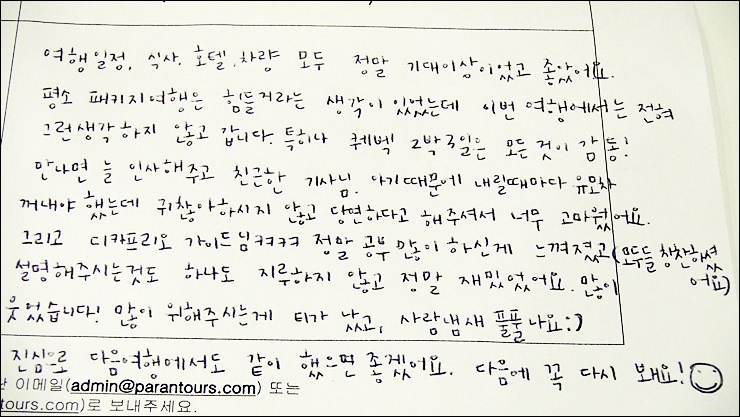 여행일정, 식사, 호텔, 차량 모두 정말 기대이상이었고 좋았어요.
평소 패키지여행은 힘들거라는 생각이 있었는데 이번 여행에서는 전혀
그런생각하지 않고 갑니다. 특히나 퀘벡 2박3일은 모든것이 감동!
만나면 늘 인사해주고 친근한 기사님. 아기때문에 내릴때마다 유모차
꺼내야 했는데 귀찮아하시지 않고 당연하다고 해주셔서 너무 고마웠어요.
그리고 디카프리오 가이드님ㅋㅋㅋㅋ 정말 공부 많이 하신게 느껴졌고(모두들 칭찬하셨
어요)
설명해주시는것도 하나도 지루하지 않고 정말 재밌었어요. 많이
웃었습니다! 많이 위해주시는게 티가 났고, 사람냄새 풀풀나요:)
진심으로 다음여행에서도 같이 했으면 좋겠어요. 다음에 꼭 다시 봬요!
이메일(admin@parantours.com) 또는
tours.com)로 보내주세요.